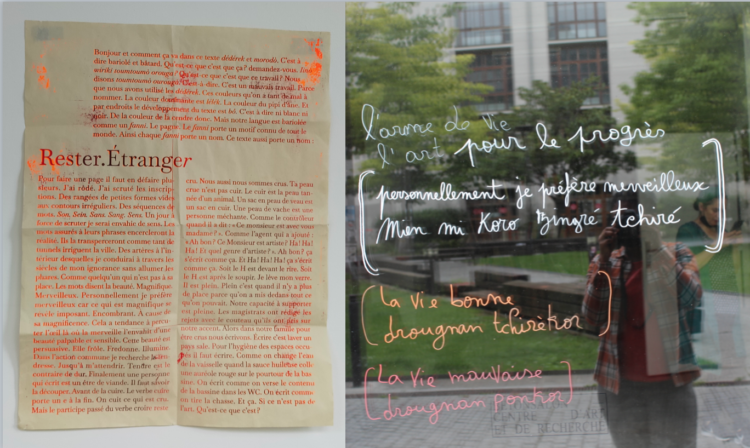 Bonjour et comment ça va dans ce texte dédérek et morodó. C'est à
dire bariolé et bâtard. Qu'est-ce que c'est que ça? demandez-vous.
Qu'est-ce que c'est que ce travail? Nous
disons C'est à dire. C'est un mauvais travail. Parce
que nous avons utilisé les dédérek. Ces couleurs qu'on a tant de mal à
nommer. La couleur est félek. La couleur du pipi d'âne. Et
par endroits le développement du texte est bé. C'est à dire ni blanc ni
De la couleur de la cendre donc. Mais notre langue est bariolée
comme un fanni. Le pagne. Le fanni porte un motif connu de tout le
monde. Ainsi chaque fanni porte un nom. Ce texte aussi porte un nom:
Rester.Étranger
Pour faire une page il faut en défaire plu-
sieurs. J'ai rôdé. J'ai scruté les inscrip-
tions. Des rangées de petites formes vides
aux contours irréguliers. Des séquences de
mots. Son. Sein. Sans. Sang. Sens. Un jour à
force de scruter je serai envahie de sens. Les
mots assurés à leurs phrases encercleront la
réalité. Ils la transperceront comme tant de
tunnels irriguent la ville. Des artères à l'in-
térieur desquelles je conduirai à travers les
siècles de mon ignorance sans allumer les
phares. Comme quelqu'un qui n'est pas à sa
place. Les mots disent la beauté. Magnifique.
Merveilleux. Personnellement je préfère
merveilleux car ce qui est magnifique se
révèle imposant. Encombrant. A cause de
sa magnificence. Cela a tendance à perturber
l'œil là où la merveille l'envahit d'une
beauté palpable et sensible. Cette beauté est
pulvinisée. Elle frôle. Fredonne. Illumine.
Dans l'action commune je recherche la ten-
dresse. Jusqu'à m'attendrir. Tendre est le
contraire de dur. Finalement une personne
qui écrit est un être de viande. Il faut savoir
la découper. Avant de la cuire. Le verbe cuire
porte un e à la fin. On cuit ce qui est cru.
Mais le participe passé du verbe croire reste
cru. Nous aussi nous sommes crus. Ta peau
crue n'est pas cuit. Le cuit est la peau tan-
née d'un animal. Un sac en peau de veau est
un sac en cuir. Une peau de vache est une
personne méchante. Comme le contrôleur
quand il a dit : «Ce monsieur est avec vous
madame?». Comme l'agent qui a ajouté :
«Ah bon? Ce Monsieur est artiste? Ha! Ha!
Ha! Et quel genre d'artiste?». Ah bon? ça
s'écrit comme ça. Et Ha! Ha! Ha! ça s'écrit
comme ça. Soit le H est devant le rire. Soit
le H est après le soupir. Je lève mon verre.
Il est plein. Plein c'est quand il n'y a plus
de place parce qu'on a mis dedans tout ce
qu'on pouvait. Notre capacité à supporter
est pleine. Les magistrats ont rédigé les
rejets avec le couteau qu'ils ont mis sur
notre accent. Alors dans notre famille pour
être crus nous écrivons. Écrire c'est laver un
pays sale. Pour l'hygiène des espaces occu-
pés il faut écrire. Comme on change l'eau
de la vaisselle quand la sauce huileuse colle
une auréole rouge sur le pourtour de la bas-
sine. On écrit comme on verse le contenu
de la bassine dans les WC. On écrit comme
on tire la chasse. Et ça. Si ce n'est pas de
l'art. Qu'est-ce que c'est?
l'arme de vie
l'art pour le progrès
personnellement je préfère merveilleux
Mien mi Koro Bingré tchiré
(la vie bonne
drougnan tchirèkor)
(La vie mauvaise
drougnan porkor)
ET DE RECHERCHE